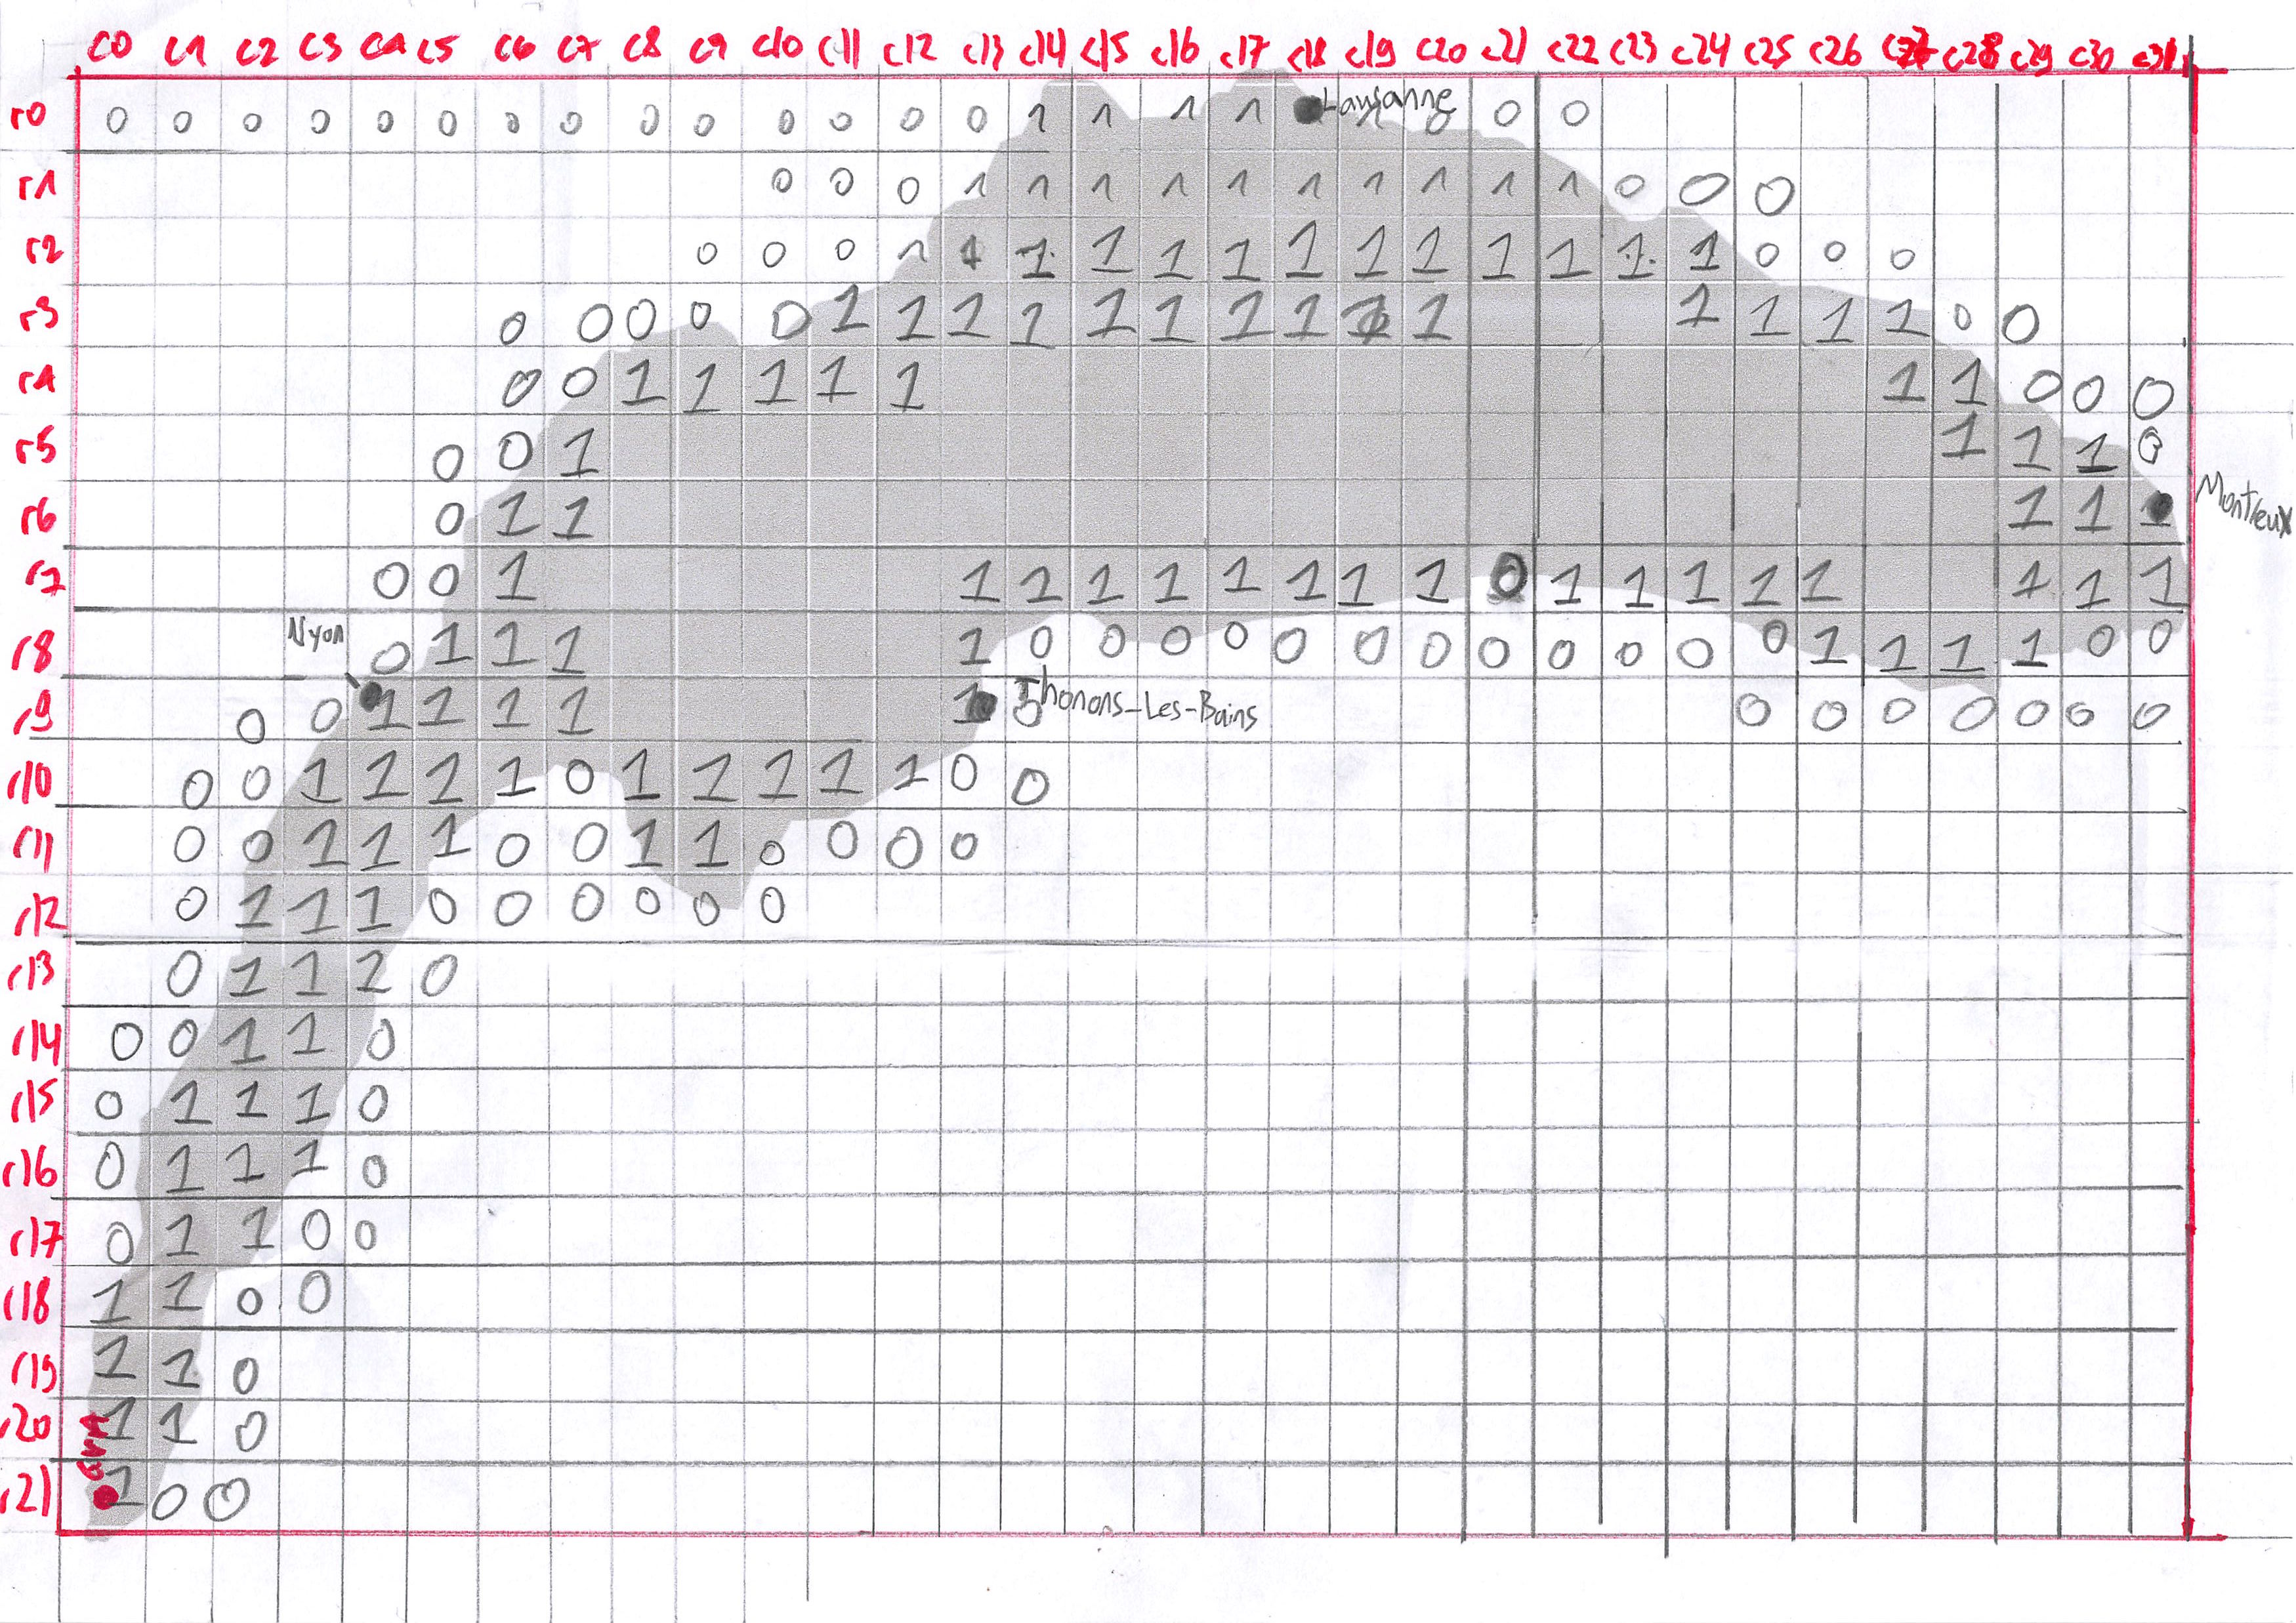 c0 c1 c2 c3 c4 c5 c6 c7 c8 c9 c10 c11 c12 c13 c14 c15 c16 c17 c18 c19 c20 c21 c22 c23 c24 c25 c26 c27 c28 c29 c30 c31
r0 0 0 0 0 0 0 0 0 0 0 0 0 0 0 1 1 1 1 Lausanne 0 0
r1 0 0 0 1 1 1 1 1 1 1 1 1 1 0 0 0
r2 0 0 0 1 1 1 1 1 1 1 1 1 1 1 1 1 0 0 0
r3 0 0 0 0 0 1 1 1 1 1 1 1 1 1 1 1 1 1 0 0
r4 0 0 1 1 1 1 1 1 1 0 0 0
r5 0 0 1 1 1 1 0
r6 0 1 1 1 1 1 Montreux
r7 0 0 1 1 1 1 1 1 1 1 1 0 1 1 1 1 1 1 1 1
Nyon
r8 0 1 1 1 1 0 0 0 0 0 0 0 0 0 0 0 0 1 1 1 1 0 0
r9 0 0 1 1 1 1 1 Thonons-Les-Bains 0 0 0 0 0 0 0
r10 0 0 1 1 1 1 0 1 1 1 1 1 0 0
r11 0 0 1 1 1 0 0 1 1 0 0 0 0
r12 0 1 1 1 0 0 0 0 0 0
r13 0 1 1 1 0
r14 0 0 1 1 0
r15 0 1 1 1 0
r16 0 1 1 1 0
r17 0 1 1 0 0
r18 1 1 0 0
r19 1 1 0
r20 1 1 0
r21 1 0 0